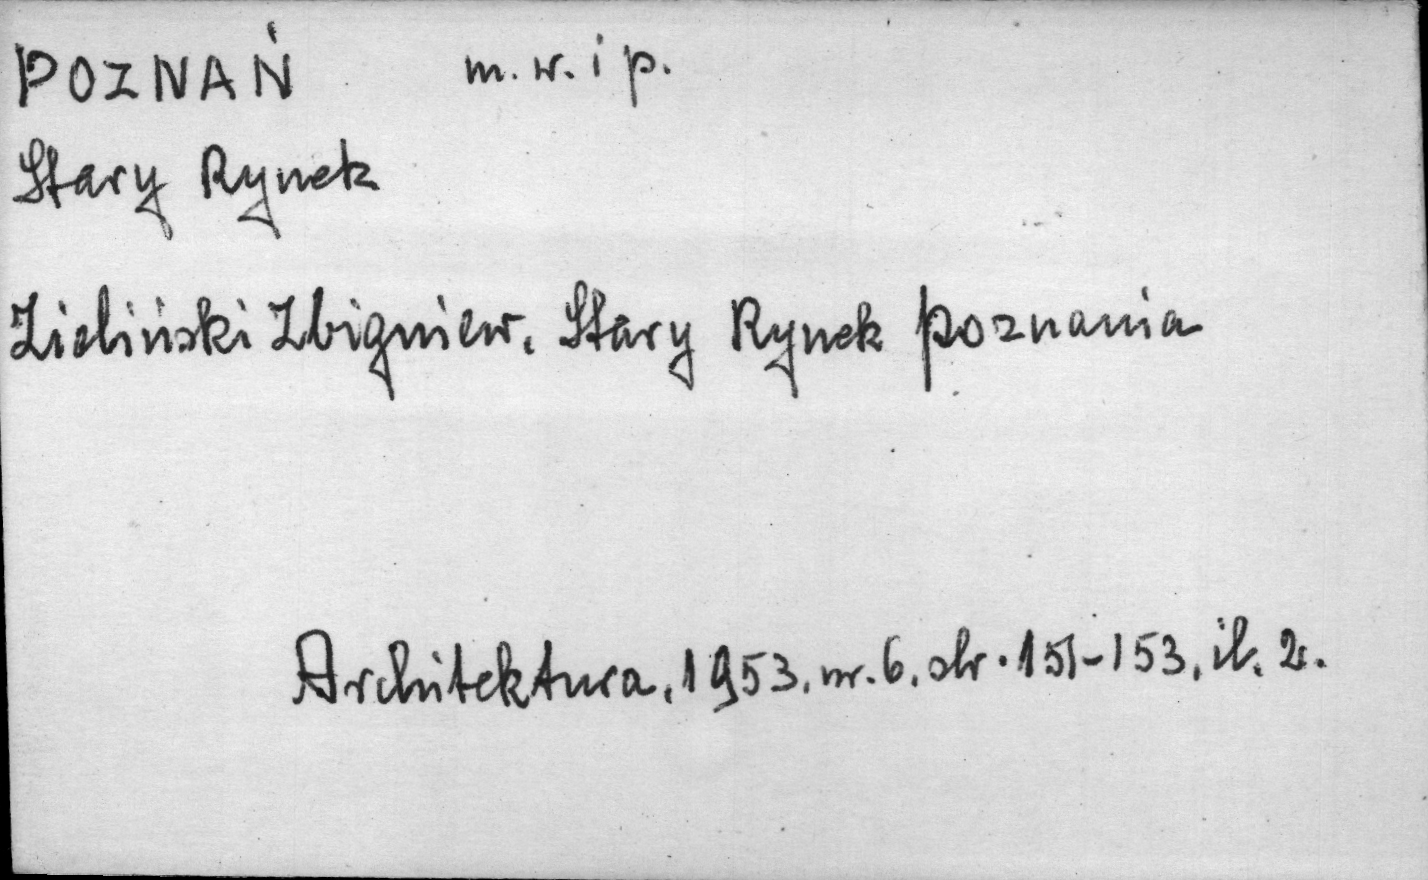 POZNAŃ m. w. i p.
Stary Rynek
Zieliński Zbigniew. Stary Rynek Poznania
Architektura, 1953, nr. 6, str. 151-153, il. 2.